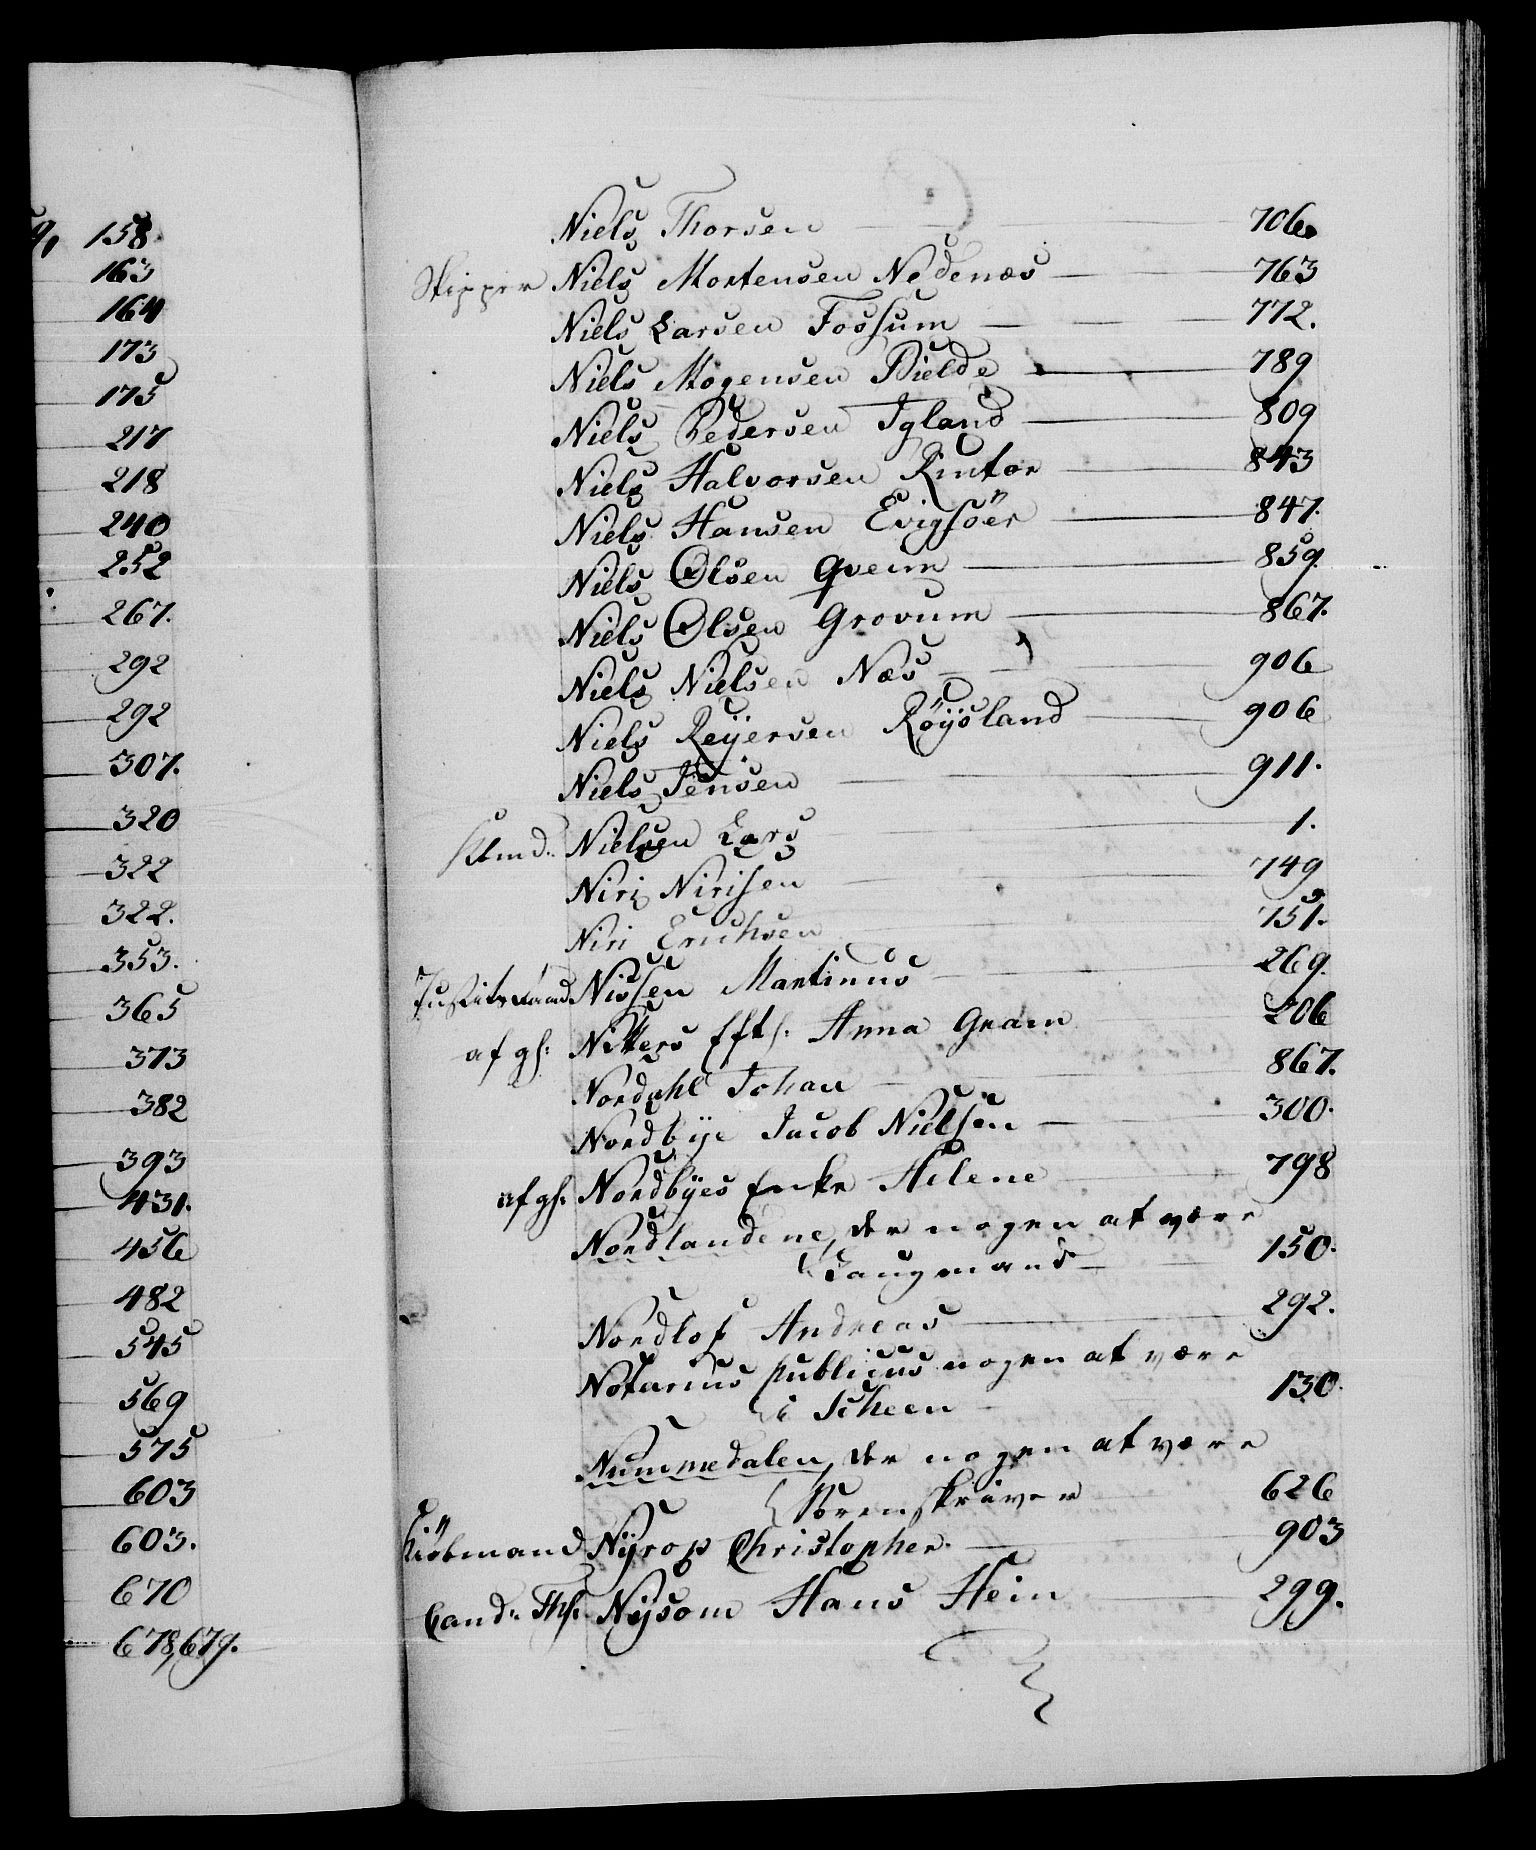 9, 158.
163
164
173
175
217
218
240
252
267.
292
292
307.
320
322
322.
353.
365
373
382
393
431.
456
482
545
569
575
603
603.
670
678,679.
Niels Thorsen 706.
Skipper Niels Mortensen Nedenæs 763
Niels Larsen Fossum 772.
Niels Mogensen Bielde 789
Niels Pedersen Igland 809
Niels Halvorsen 843
Niels Hansen Evigsöer 847.
Niels Olsen Qveim 859.
Niels Olsen Grovum 867.
Niels Nielsen Næs 906
Niels Reÿersen Röÿsland 906
Niels Jensen 911.
Nielsen Lars 1.
Niri Nirisen 749
Niri Erichsen 751.
Justitsraad Nissen Martinus 269.
afgh: Nitters Efth: Anna Gram 206
Nordahl Johan 867.
Nordbÿe Jacob Nielsen 300.
afgh: Nordbÿes Enke Helene 798
Nordlandene, der nogen at være
Laugmand 150.
Nordlof Andreas 292.
Notarius publicus nogen at være
i Scheen 130.
Nummedalen, der nogen at være
Sorenskriver 626
Kiöbmand Nÿrop Christopher. 903
Cand: Th: Nÿsom Hans Hein 299.